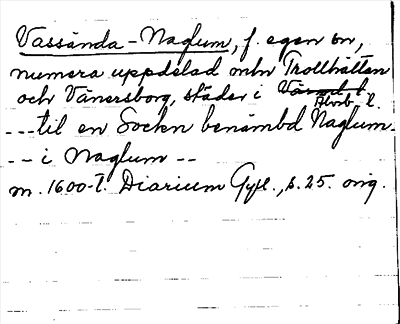 Vassända-Naglum, f. egen kn,
numera uppdelad mln Trollhättan
och Vänersborg, städer i Älvsb. l.
---til en Sockn benämbd Naglum-
-- i Naglum --
m. 1600-t. Diarium Gyll., s. 25. orig.